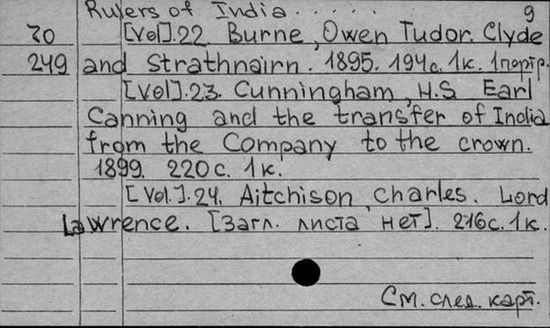 Rulers of India......
9
30
249
[Vol].22. Burne, Owen Tudor. Clyde
and Strathnairn. 1895. 194с. 1к. 1портр.
[Vol].23. Cunningham, H.S. Earl
Canning and the transfer of India
from the Company to the crown.
1899. 220с. 1к.
[Vol.].24. Aitchison, Charles. Lord
Lawrence. [Загл. листа нет]. 216с. 1к.
См. след. карт.